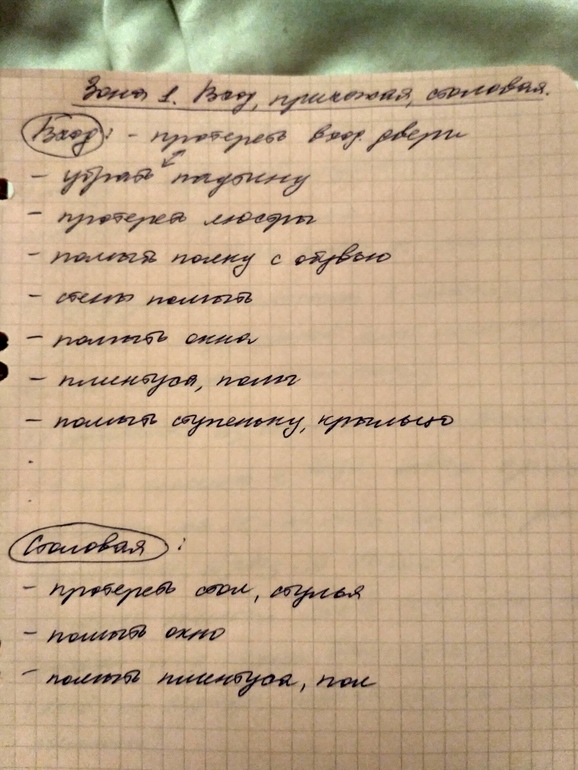 Зона 1. Вход, прихожая, столовая.
Вход: - протереть вход. двери
- убрать паутину
- протереть люстры
- помыть полку с обувью
- стены помыть
- помыть окна
- плинтуса, полы
- помыть ступеньку, крыльцо
Столовая:
- протереть стол, стулья
- помыть окно
- помыть плинтуса, пол